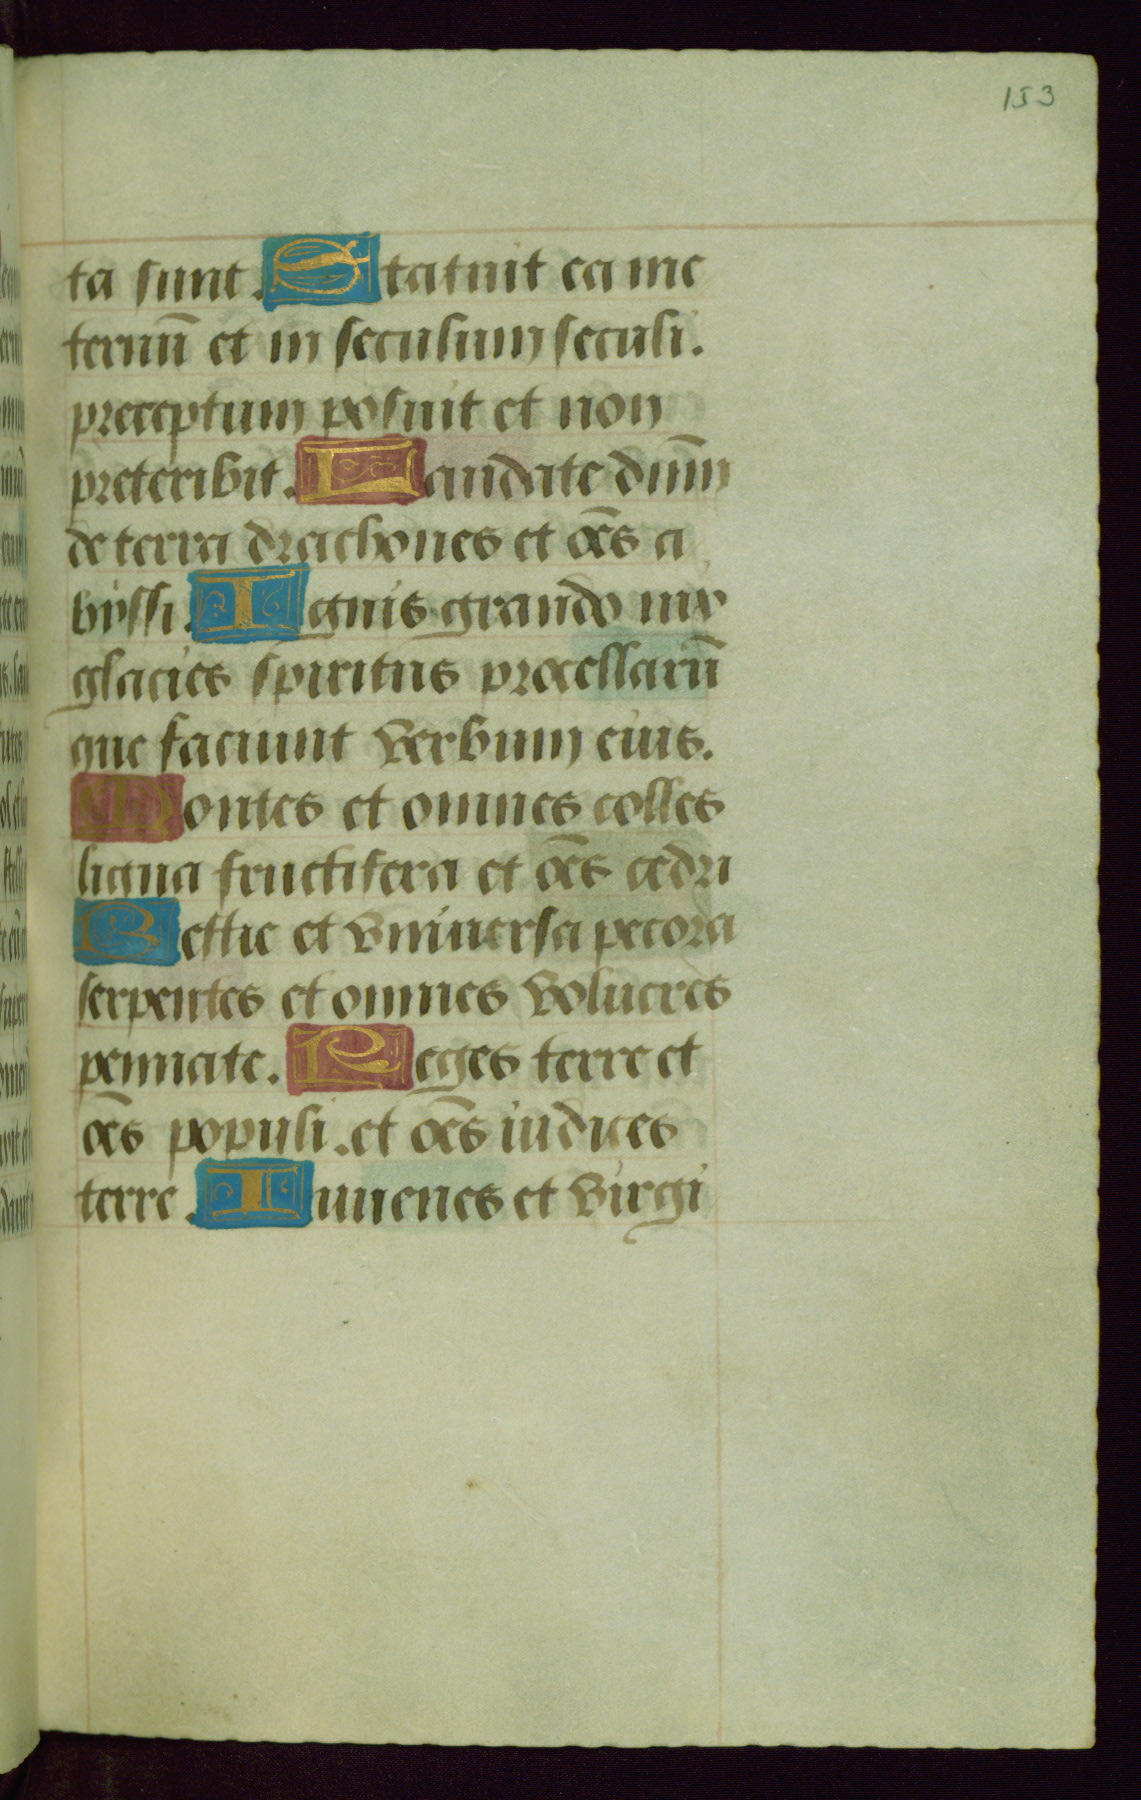 153
ta sunt. Statuit ea ine
ternū et in seculum seculi.
preceptum posuit et non
preteribit. Laudate dn̄m
de terra drachones et oēs a
byssi. Ignis grando nix
glacies spiritus procellarū
que faciunt verbum eius.
Montes et omnes colles
ligna fructifera et oēs cedri
Bestie et vniuersa pecora
serpentes et omnes volucres
pennate. Reges terre et
oēs populi. et oēs iudices
terre. Iuuenes et virgi